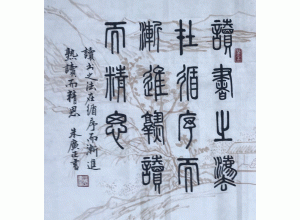 讀書之灋
在循序而
漸進䎡讀
而精思
讀書之法在循序而漸進
熟讀而精思 朱廣正書